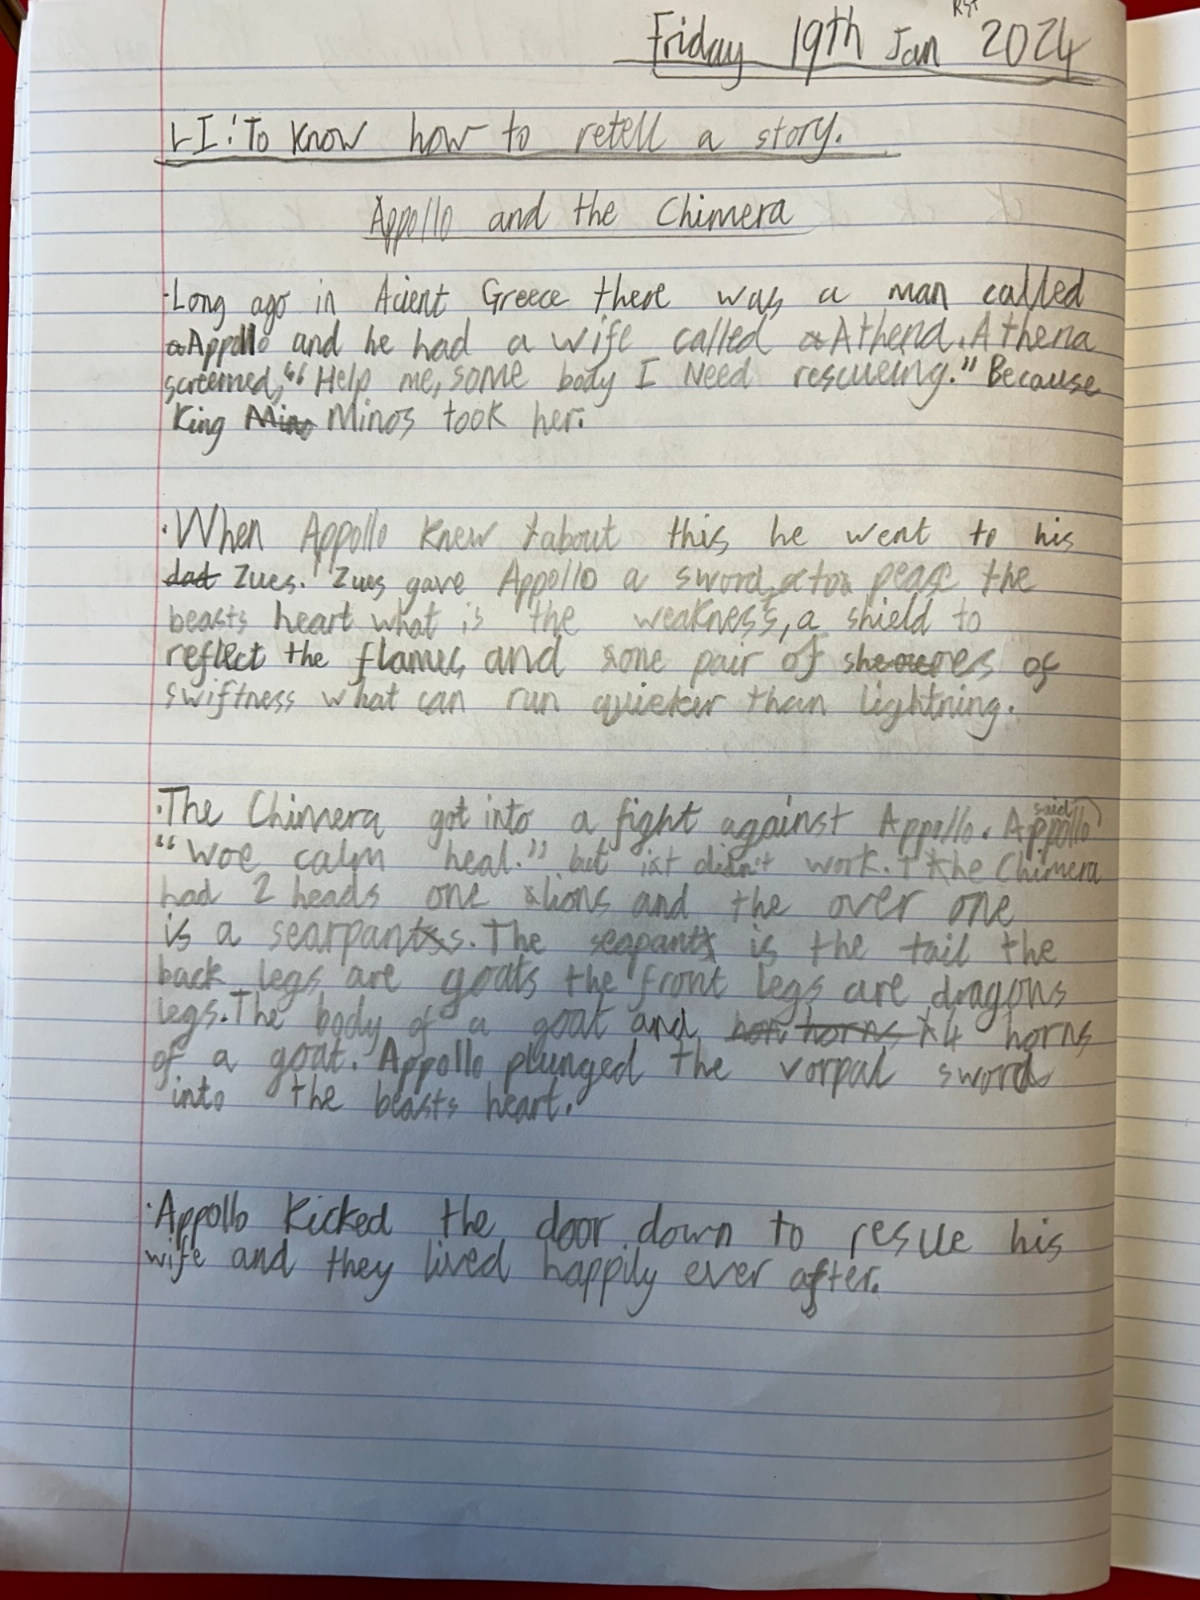 Friday 19th Jan 2024
LI: To know how to retell a story.
Appollo and the Chimera
·Long ago in Acient Greece there was a man called
Appollo and he had a wife called Athena. Athena
screemed, "Help me, some body I Need rescueing." Because
King Minos took her.
·When Appollo knew about this he went to his
Zues. Zues gave Appollo a sword, to the
beasts heart what is the weakness, a shield to
reflect the flames and one pair of of
swiftness what can run quicker than lightning.
·The Chimera got into a fight against Appollo. Appollo said
"woe calm heal." but it didn't work. The Chimera
had 2 heads one lions and the over one
is a searpants. The seapant is the tail the
back legs are goats the front legs are dragons
legs. The body of a goat and 4 horns
of a goat. Appollo plunged the vorpal sword
into the beasts heart.
·Appollo Kicked the door down to resue his
wife and they lived happily ever after.